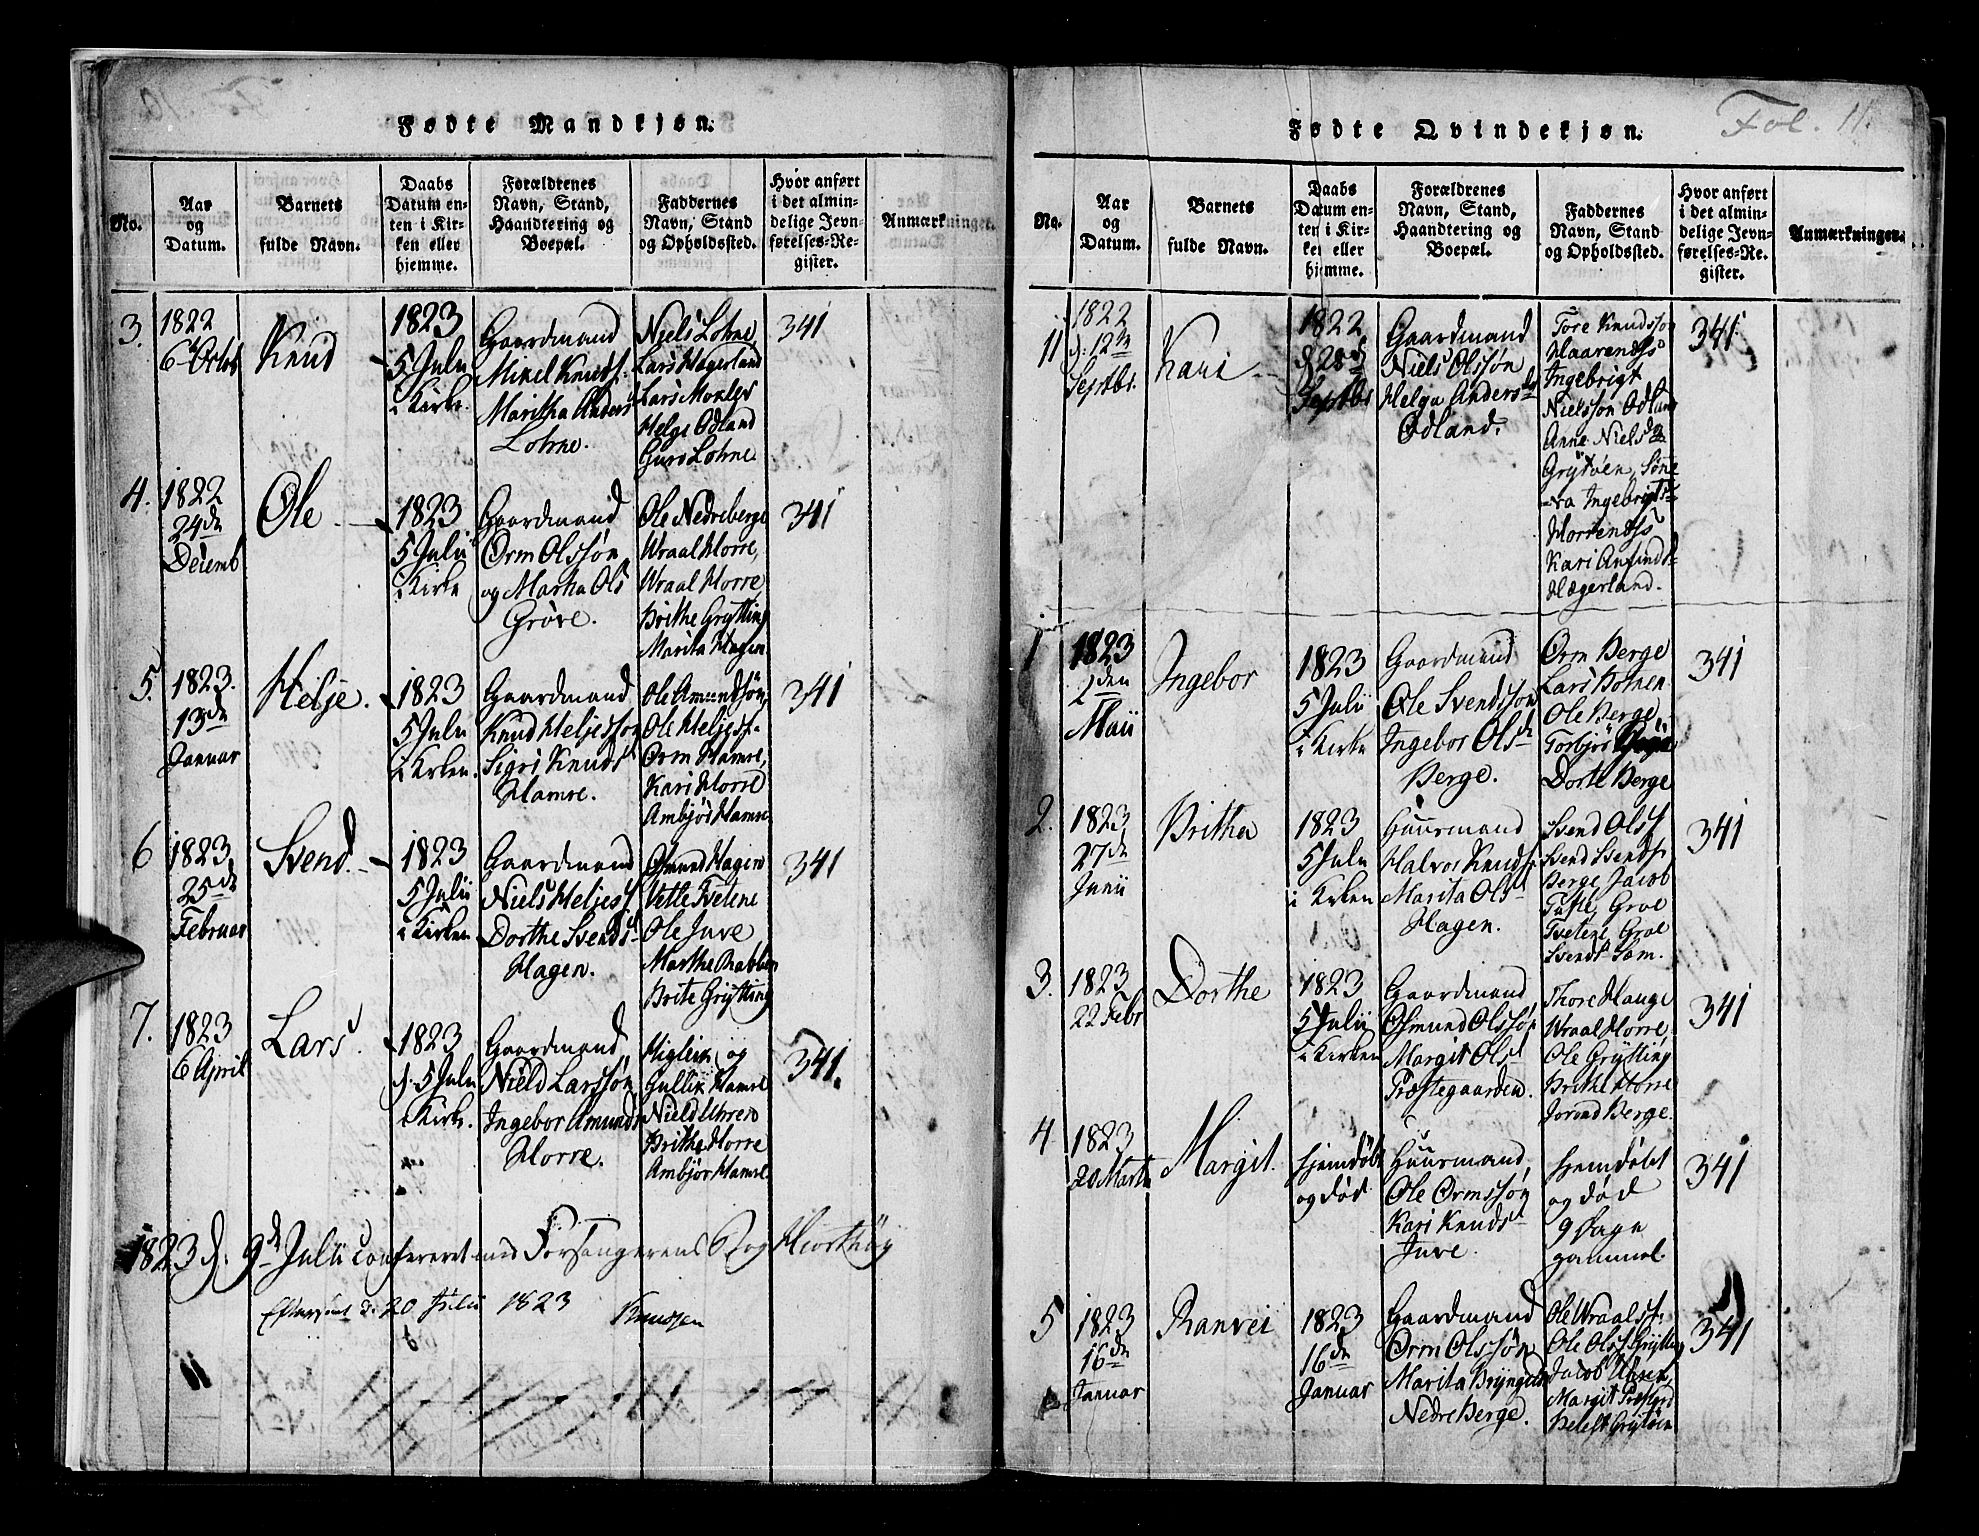 Fødte Mandkjøn.
No.
Aar og Datum.
Barnets fulde Navn.
Daabs Datum enten i Kirken eller hjemme.
Forældrenes Navn, Stand, Haandtering og Boepæl.
Faddernes Navn, Stand og Opholdssted.
Hvor anført i det almindelige Jevnførelses-Register.
Anmærkninger.
3.
1822
6 Octob
Knud
1823
5 Julii
i Kirke.
Gaardmand
Mikel Knuds.
Maritha Anders
Lohne.
Niels Lohne,
Lars Hægerland
Lars
Helge Odland
Guro Lohne
341
4.
1822
24de
Decemb
Ole
1823
5 Julii
i Kirke
Gaardmand
Orm Olssøn
og Martha Ols
Grove.
Ole Nedreberge
Wraal Horre,
Wraal Horre
Brithe Grytting
Marita Hagen
341
5.
1823.
13de
Januar
Helje.
1823
5 Julii
i Kirken.
Gaardmand
Knud Heljessøn
Sigri Knuds
Hamre.
Ole Amundsøn,
Ole Heljess.
Orm Hamre,
Kari Horre
Ambjør Hamre
341
6
1823
25de
Februar
Svend.
1823
5 Julii
i Kirken
Gaardmand
Niels Heljess
Dorthe Svends
Hagen.
Osmund Hagen
Vetle Tvetene
Ole Juve
Marthe Rabben
Brite Grytting
341
7.
1823
6 April
Lars.
1823
d. 5 Julii
i Kirke.
Gaardmand
Nield Larssøn
Ingebor Amunds
Horre.
og
Gullik Hamre
Nield Uhren
Brithe Horre
Ambjør Hamre
341.
1823 d. 9de Julii Conffereret med Forsangerens Bog Hiorthøy
Efterseet d. 20 Julii 1823 Knudsen
Fødte Qvindekjøn.
Fol. 11.
No.
Aar og Datum.
Barnets fulde Navn.
Daabs Datum enten i Kirken eller hjemme.
Forældrenes Navn, Stand, Haandtering og Boepæl.
Faddernes Navn, Stand og Opholdssted.
Hvor anført i det almindelige Jevnførelses-Register.
Anmærkninger.
11
1822
d. 12te
Septbr.
Kari
1822
d 28de
Septbr
Gaardmand
Niels Olssøn
Helga Andersd
Odland.
Tore Knudssøn
Ingebrigt
Nielssøn Odland
Anne Nielsd
Grytøen,
Ingebrigts
Kari Amunds
Hægerland.
341
1
1823
2den
Maii
Ingebor
1823
5 Julii
i Kirke
Gaardmand
Ole Svendssøn
Ingebor Ols
Berge.
Orm Berge
Lars
Ole Berge
Torbjør
Dorte Berge
341
2.
1823
27de
Junii
Britha
1823
5 Julii
i Kirken
Huusmand
Halvor Knuds
Marita Ols
Hagen.
Svend Olss
Svend Svends.
Berge Jacob
Tufte, Groe
Tvetene Groe
Svends Søm.
341
3.
1823
22 Febr
Dorthe
1823
5 Julii
i Kirken
Gaardmand
Osmund Olssøn
Margit Ols
Præstegaarden.
Thore Hauge
Wraal Horre,
Ole Grytting
Brithe Horre
Jorand Berge.
341
4
1823
20 Marts
Margit
hjemdøbt
og død
Huusmand,
Ole Ormssøn
Kari Knuds
Juve.
hjemdøbt
og død
9 Dage
gammel.
341
5
1823
16de
Januar
Ranvei
1823
16de
Januar
Gaardmand
Orm Olssøn
Marita
Nedre Berge.
Ole Wraalss.
Ole Olss Grytting
Jacob Uhren,
Margit
Grytøen
341